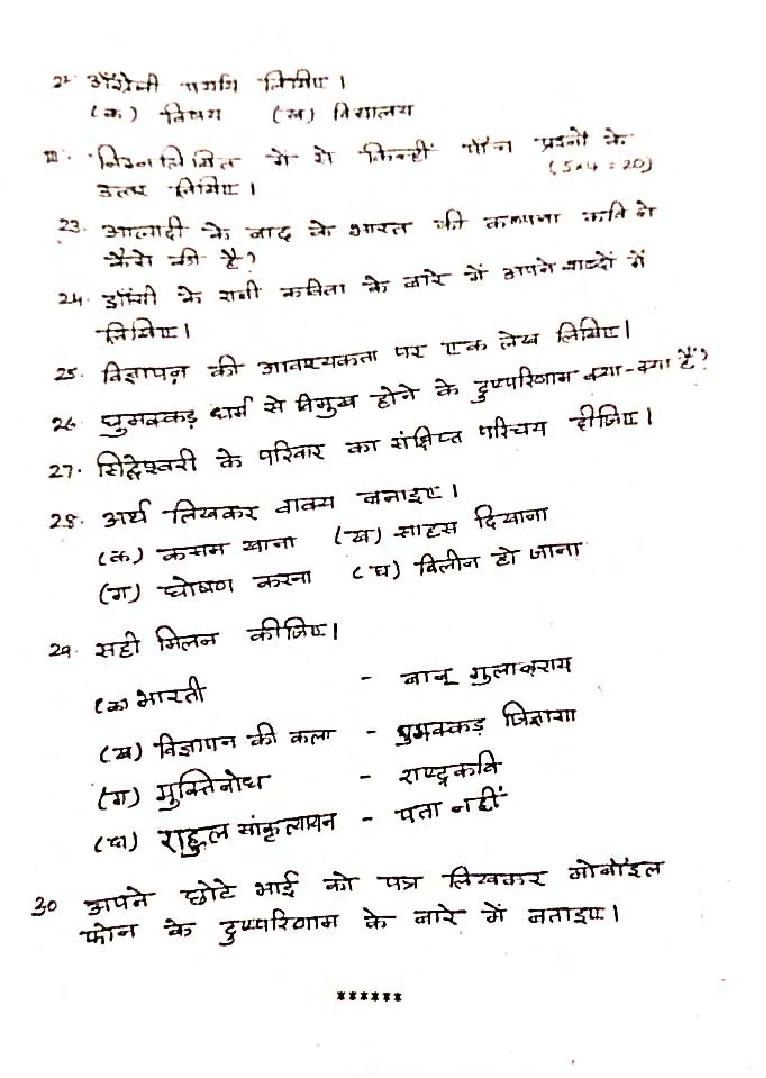 2 अँग्रेजी पर्याय लिखिए।
(क) विषय (ख) विद्यालय
III. निम्नलिखित में से किन्हीं पाँच प्रश्नों के
उत्तर लिखिए। (5x4=20)
23. आजादी के बाद के भारत की कल्पना कवि ने
कैसे की है?
24. झाँसी के रानी कविता के बारे में अपने शब्दों में
लिखिए।
25. विज्ञापन की आवश्यकता पर एक लेख लिखिए।
26. घुमक्कड़ धर्म से विमुख होने के दुष्परिणाम क्या-क्या हैं?
27. सिद्देश्वरी के परिवार का संक्षिप्त परिचय दीजिए।
28. अर्थ लिखकर वाक्य बनाइए।
(क) कसम खाना (ख) साहस दिखाना
(ग) घोषण करना (घ) विलीन हो जाना
29. सही मिलन कीजिए।
(क) भारती - बाबू गुलाबराय
(ख) विज्ञापन की कला - घुमक्कड़ जिज्ञासा
(ग) मुक्तिबोध - राष्ट्रकवि
(घ) राहुल सांकृत्यायन - पता नहीं
30 अपने छोटे भाई को पत्र लिखकर मोबॉइल
फोन के दुष्परिणाम के बारे में बताइए।
******